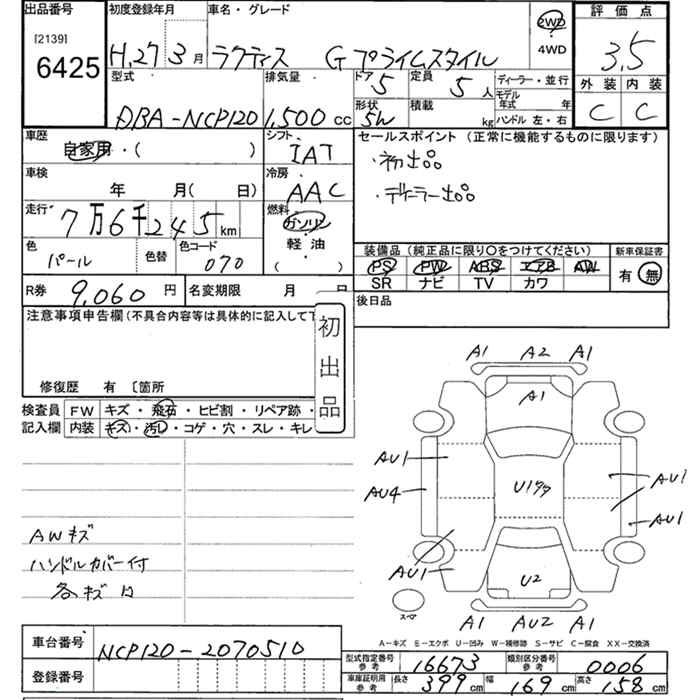 出品番号 初度登録年月 車名・グレード 評価点
[2139]
6425 H.27 3月 ラクティス Gプライムスタイル 2WD 4WD 3.5
型式 排気量 ドア 5 定員 5人 ディーラー・並行 外装 内装
DBA-NCP120 1,500 cc 形状 5W 積載 kg モデル年式 年 ハンドル 左・右 C C
車歴 シフト セールスポイント (正常に機能するものに限ります)
自家用・( ) IAT ・初出品
車検 冷房 ・ディーラー出品
年 月( 日) AAC
走行 7万6千245km 燃料 ガソリン
色 色替 色コード 軽油 装備品 (純正品に限り○をつけてください) 新車保証書
パール 070 ( ) PS PW ABS エアB AW 有 無
SR ナビ TV カワ
R券 9,060円 名変期限 月 日 後日品
注意事項申告欄(不具合内容等は具体的に記入して下
初出品
修復歴 有 〔箇所
検査員 FW キズ・飛石・ヒビ割・リペア跡・
記入欄 内装 キズ・汚れ・コゲ・穴・スレ・キレ
A1 A2 A1
A1
AU1
AU4 U1 AU1
AU1
AWキズ
ハンドルカバー付
各キズ凹
AU1 U2
スペ
A1 AU2 A1
A-キズ E-エクボ U-凹み W-補修跡 S-サビ C-腐食 XX-交換済
車台番号 NCP120-2070510
型式指定番号 参考 16673 類別区分番号 参考 0006
登録番号 車庫証明用 参考 長さ 399cm 幅 169cm 高さ 158cm